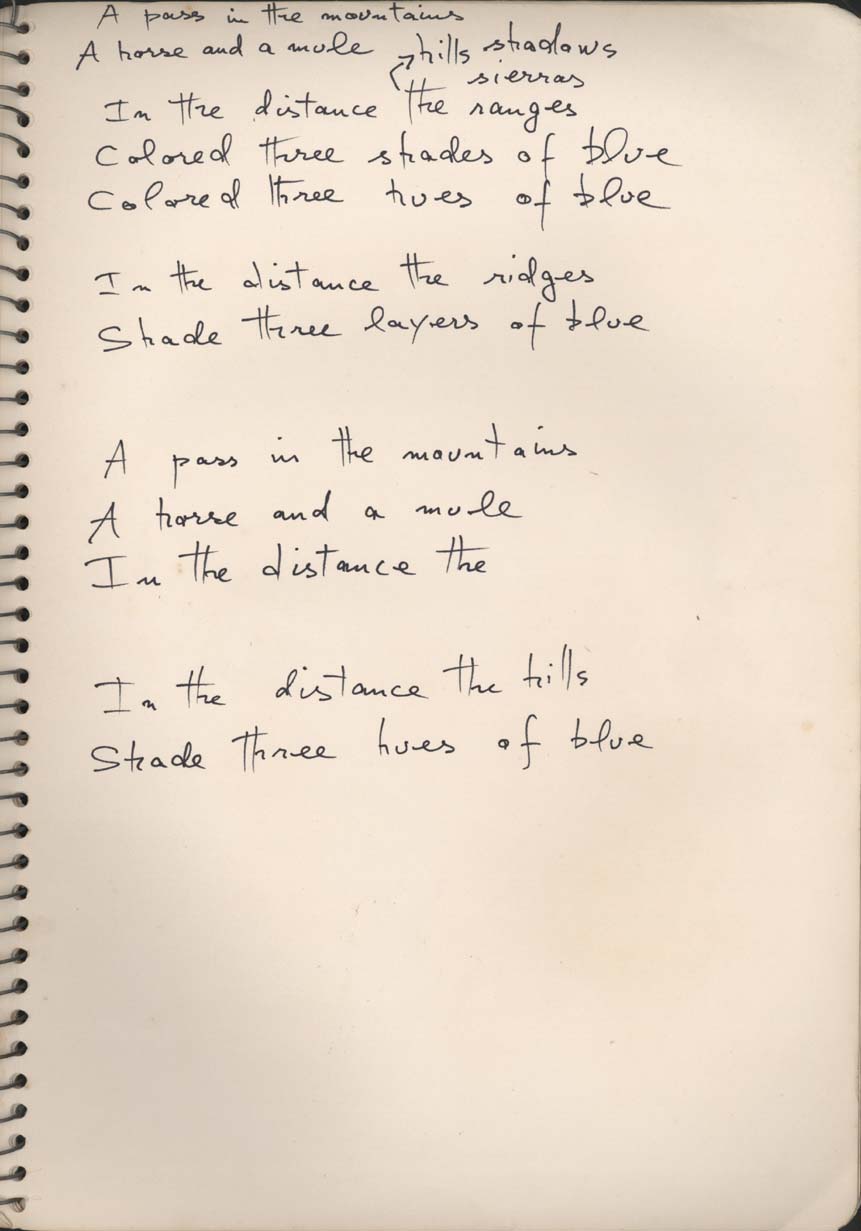 A pass in the mountains
A horse and a mule hills shadows
sierras
In the distance the ranges
Colored three shades of blue
Colored three hues of blue
In the distance the ridges
Shade three layers of blue
A pass in the mountains
A horse and a mule
In the distance the
In the distance the hills
Shade three hues of blue